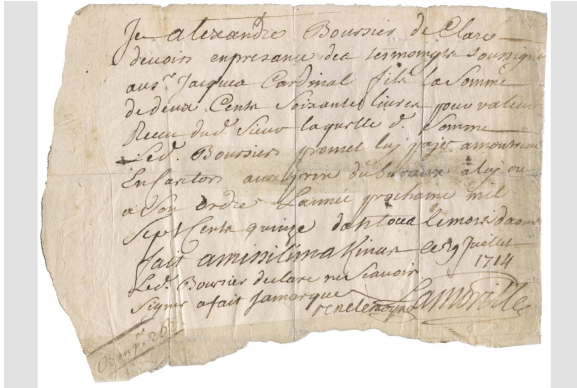 Je alexandre Boursier de Clare
devoir enpresance des temoingts sousigne
au sr. Jacques Cardinal fils la Somme
de deux Cents Soixante livres pour valeur
Receu dud. Sieur laquelle d. Somme
Led. Boursier promet luy payer amonreal
En Castors aux prix du bureau a luy ou
a Son Ordre Lannée prochaine mil
Sept Cents quinze dans tout Le mois daoust
fait amisilimakinac Ce 29 Juillet
1714
Led. Boursier declare ne Scavoir
Signer a fait Samarque
Lamorille
Bon pr. 260